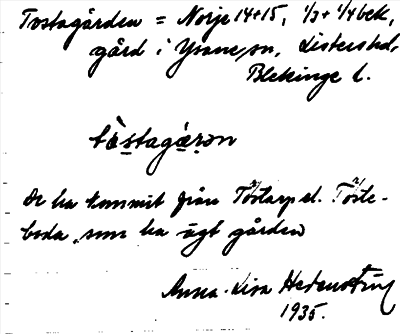 Tostagården = Norje 14+15, 1/3 + 1/4 bek,
gård i Ysane sn, Listers hd,
Blekinge l.
tòstagá̱rən
De ha kommit från Tostarp el. Toste-
boda, som ha ägt gården
Anna-Lisa Hedenström
1935.